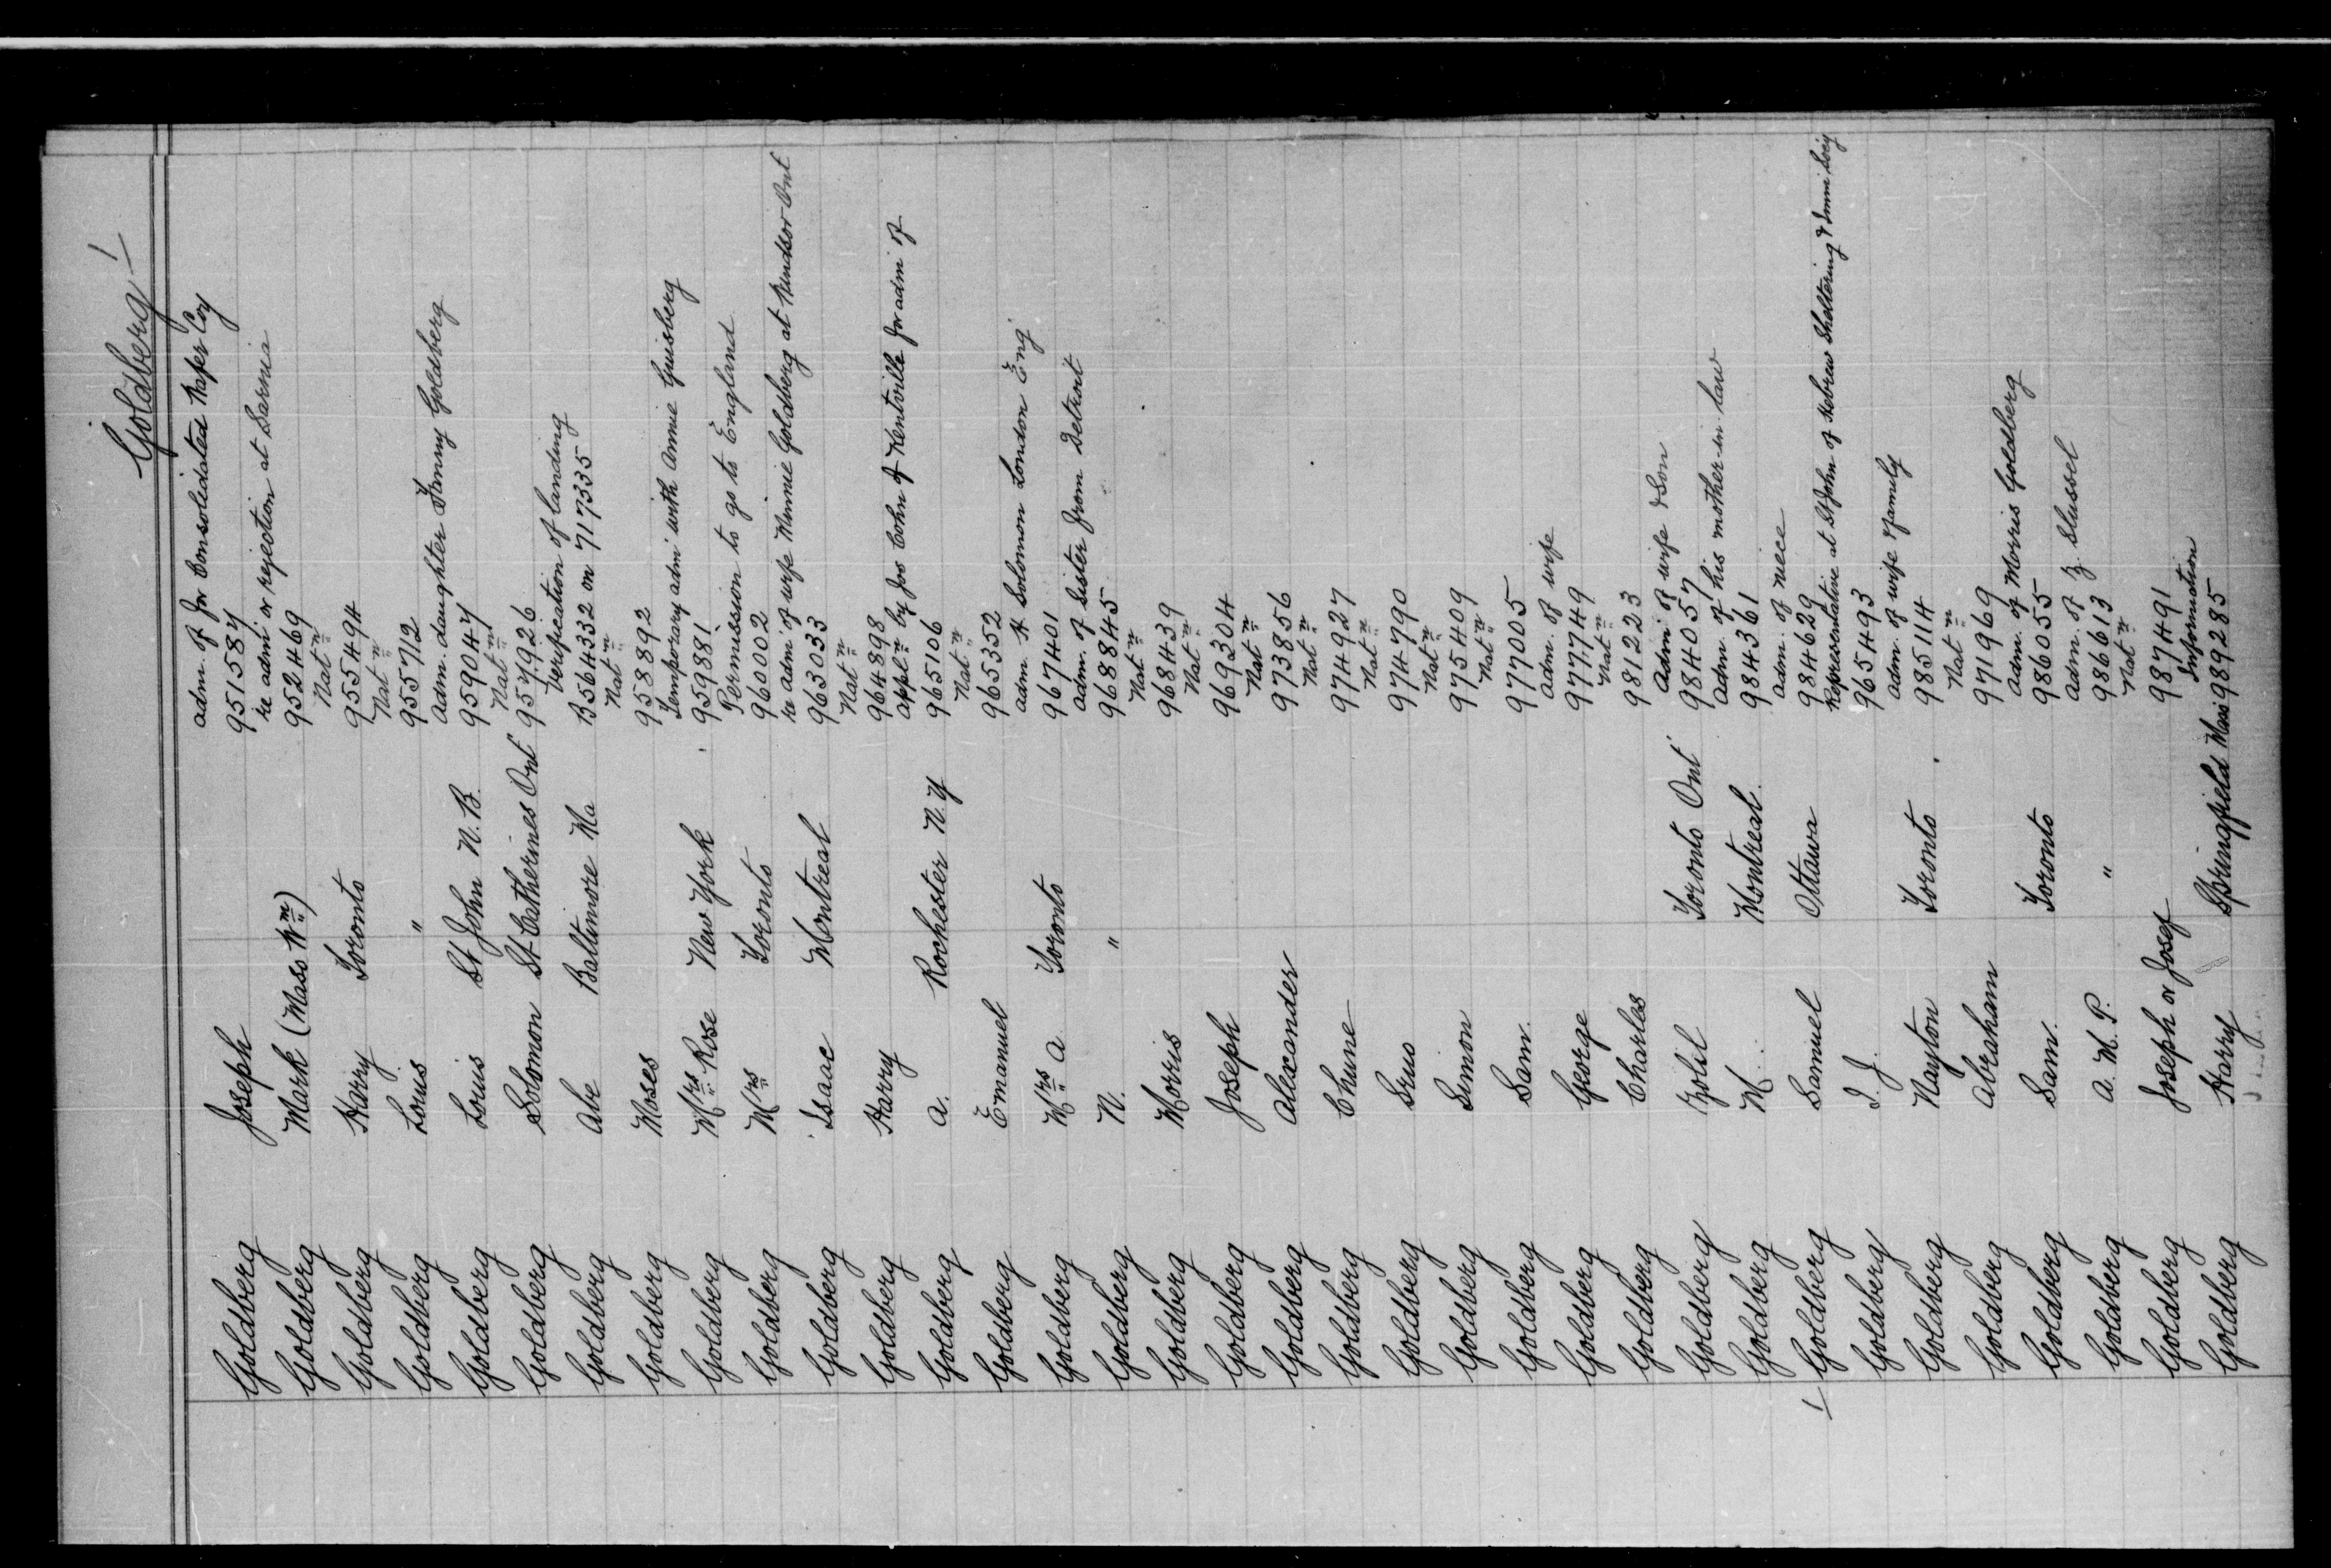 Goldberg
adm. of for Consolidated Paper Coy
Goldberg Joseph 951587
re adm or rejection at Sarnia
Goldberg Mark (Mass Wm) 952469
Natn
Goldberg Harry Toronto 955494
Natn
Goldberg Louis " 955712
adm. daughter Fanny Goldberg
Goldberg Louis St John N.B. 959047
Natn
Goldberg Solomon St Catherines Ont 957926
Verification of landing
Goldberg Abe Baltimore Ma B564332 on 717335
Natn
Goldberg Moses 958892
Temporary adm with Annie Guisberg
Goldberg Mrs Rose New York 959881
Permission to go to England
Goldberg Mrs Toronto 960002
re adm of wife Minnie Goldberg at Windsor Ont
Goldberg Isaac Montreal 963033
Natn
Goldberg Harry 964898
appln by Jos Cohn of Kentville for adm of
Goldberg A. Rochester N.Y 965106
Natn
Goldberg Emanuel 965352
adm. H Solomon London Eng
Goldberg Mrs A Toronto 967401
adm. of sister from Detroit
Goldberg N. " 968845
Natn
Goldberg Morris 968439
Natn
Goldberg Joseph 969304
Natn
Goldberg Alexander 973856
Natn
Goldberg Chune 974927
Natn
Goldberg Srus 974790
Natn
Goldberg Simon 975409
Natn
Goldberg Sam. 977005
adm. of wife
Goldberg George 977749
Natn
Goldberg Charles 981223
adm of wife & son
Goldberg Golil Toronto Ont 984057
adm. of his mother-in-law
Goldberg M. Montreal 984361
adm. of niece
Goldberg Samuel Ottawa 984629
Representative at St John of Hebrew Sheltering & Immi Socy
Goldberg I. J. 965493
adm. of wife & family
Goldberg Nayton Toronto 985114
Natn
Goldberg Abraham 971969
adm. of Morris Goldberg
Goldberg Sam. Toronto 986055
adm. of Z. Slussel
Goldberg A. M. P. " 986613
Natn
Goldberg Joseph or Josef 987491
Information
Goldberg Harry Springfield Mass 989285